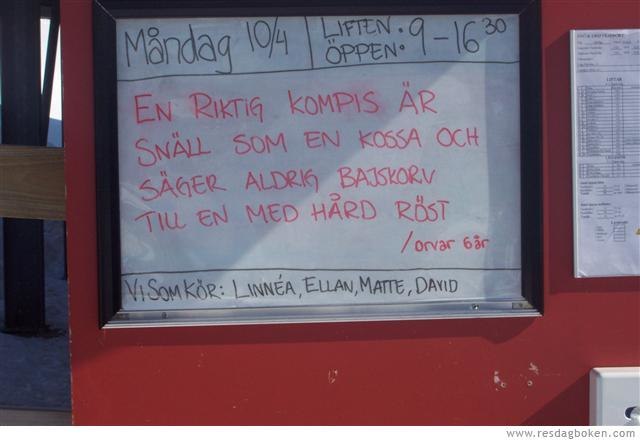 Måndag 10/4
LIFTEN ÖPPEN: 9-16 30
EN RIKTIG KOMPIS ÄR
SNÄLL SOM EN KOSSA OCH
SÄGER ALDRIG BAJSKORV
TILL EN MED HÅRD RÖST
/orvar 6 år
VI SOM KÖR: LINNÉA, ELLAN, MATTE, DAVID
www.resdagboken.com